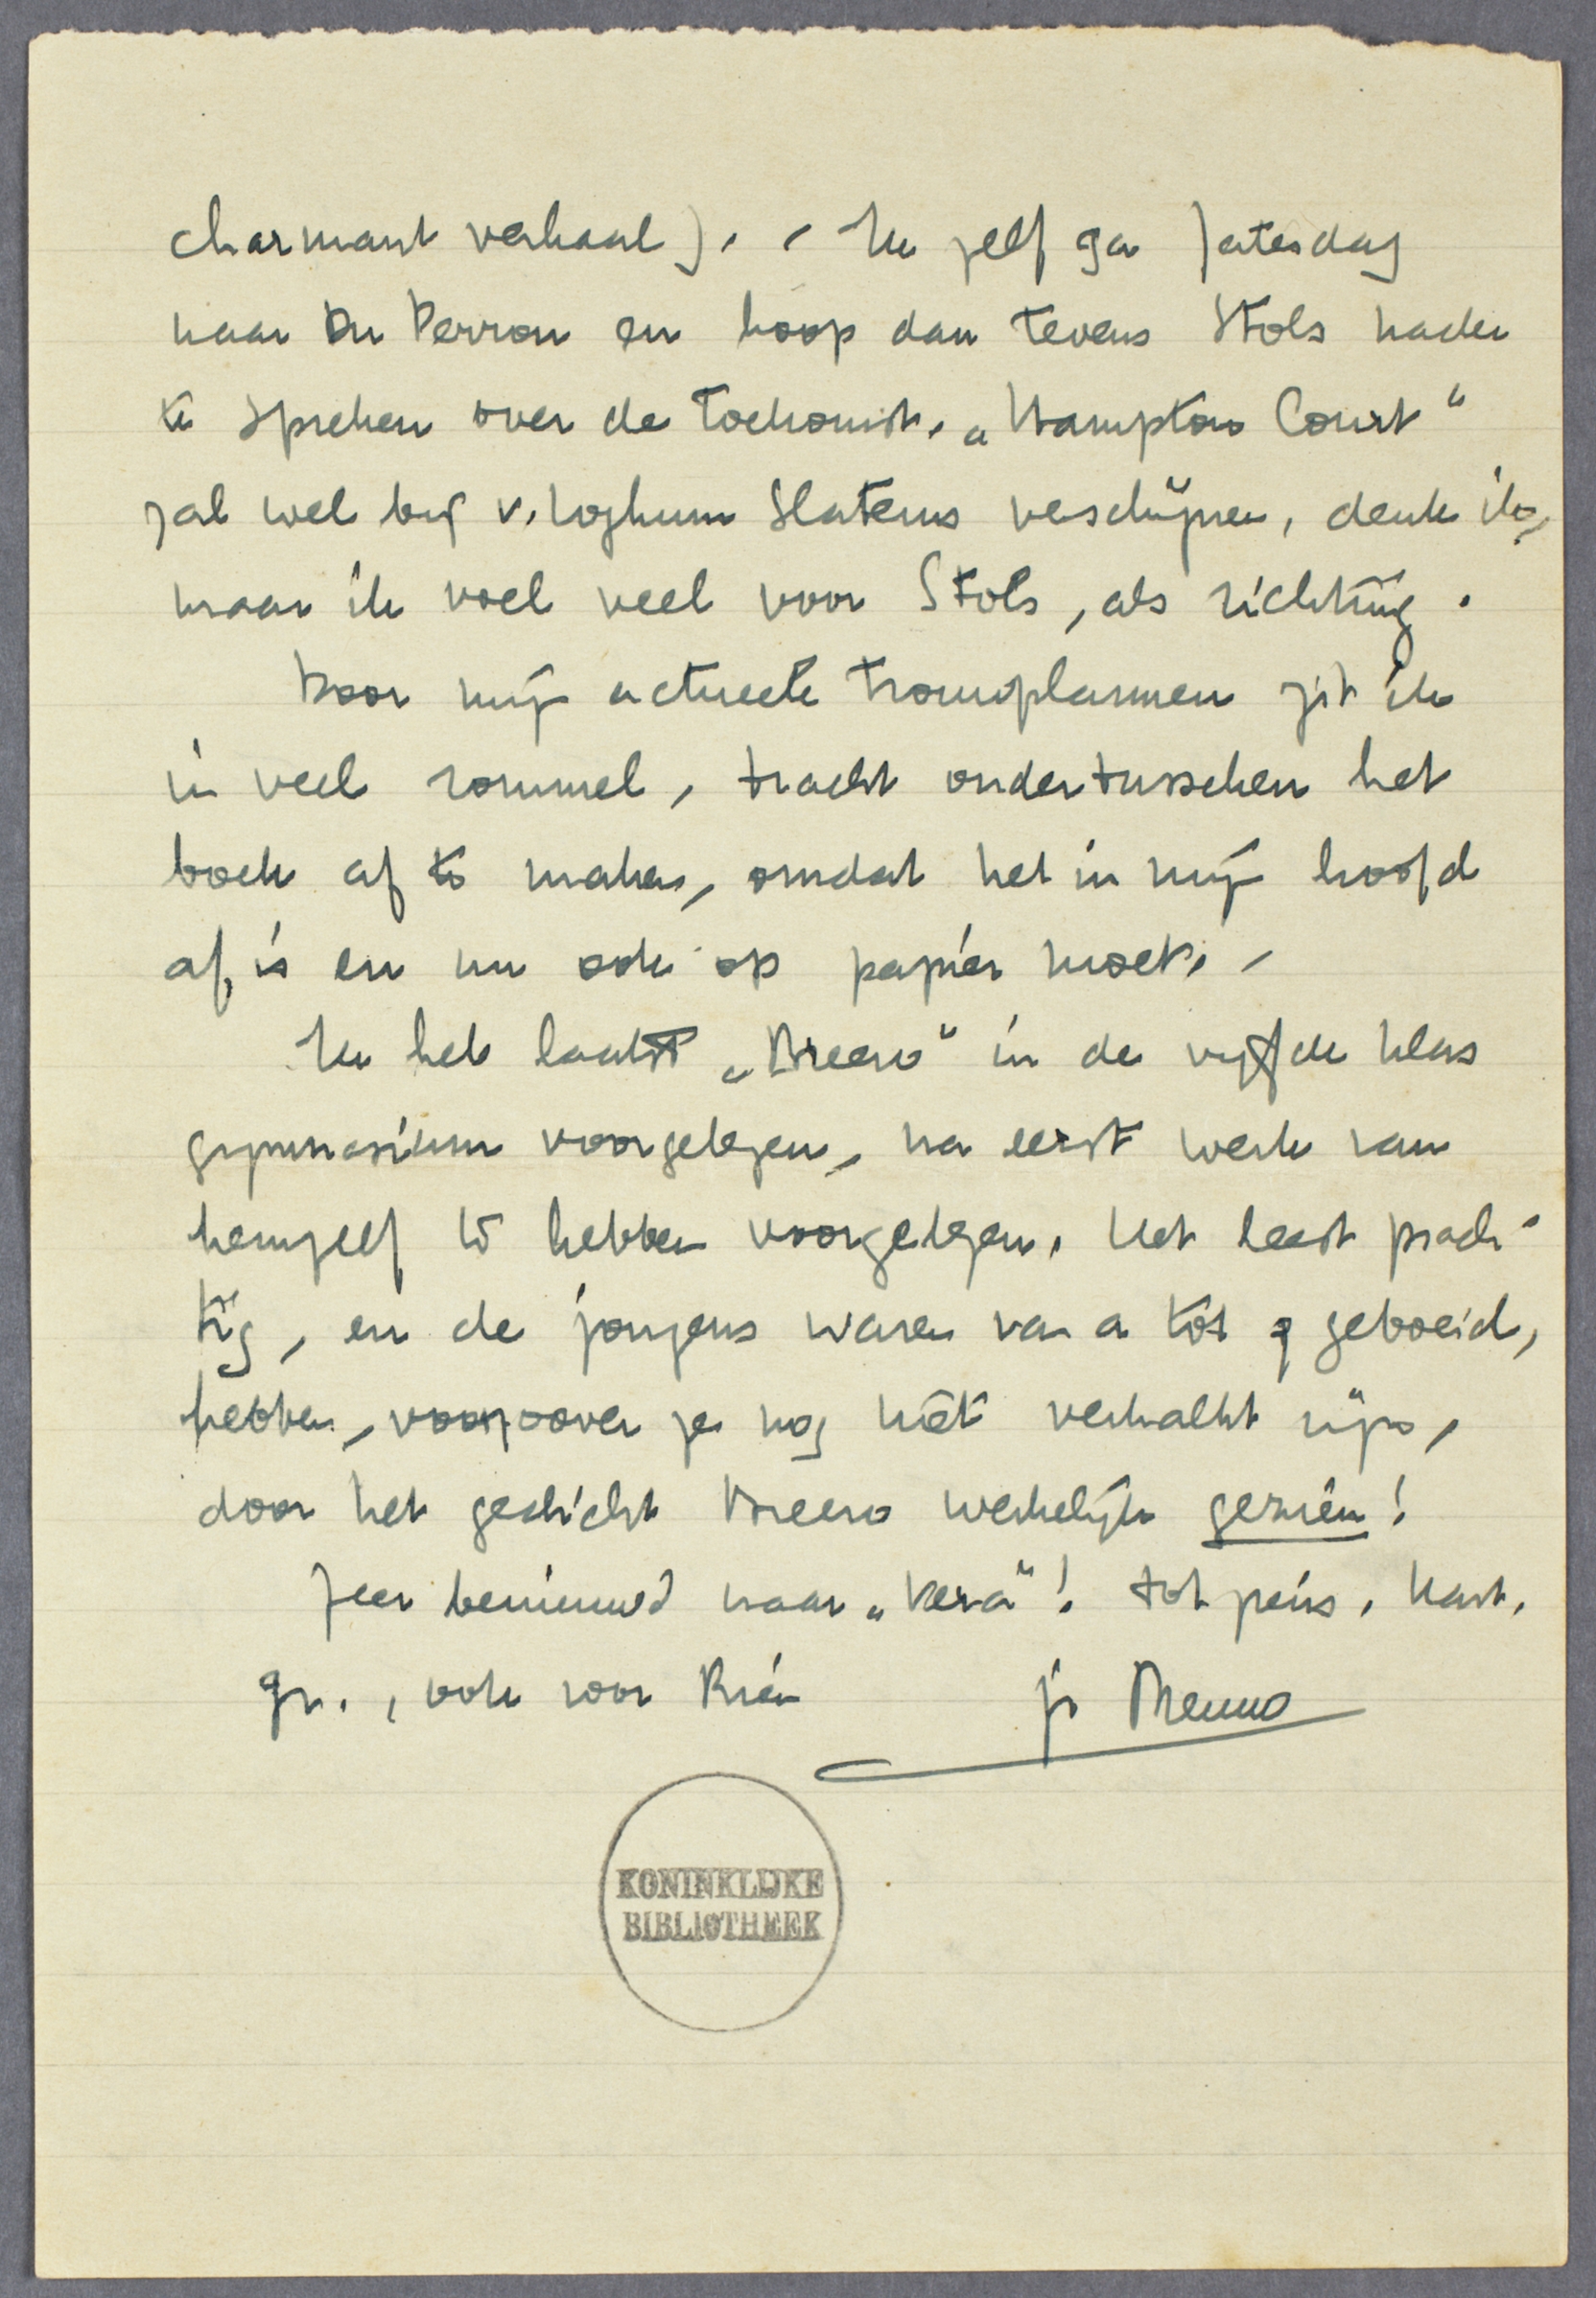 charmant verhaal). - Ik zelf ga Zaterdag
naar Du Perron en hoop dan tevens Stols nader
te spreken over de toekomst. „Hampton Court"
zal wel bij v. Loghum Slaterus verschijnen, denk ik,
maar ik voel veel voor Stols, als richting.
Door mijn actueele trouwplannen zit ik
in veel rommel, tracht ondertusschen het
boek af te maken, omdat het in mijn hoofd
af is en nu ook op papier moet. -
Ik heb laatst „Breero" in de vijfde klas
gymnasium voorgelezen, na eerst werk van
hemzelf te hebben voorgelezen. Het leest prach-
tig, en de jongens waren van a tot z geboeid,
hebben, voorzoover ze nog niet verkalkt zijn,
door het gedicht Breero werkelijk gezien!
Zeer benieuwd naar „Vera"! tot ziens. Hart.
gr., ook voor Rien je Menno
KONINKLIJKE
BIBLIOTHEEK